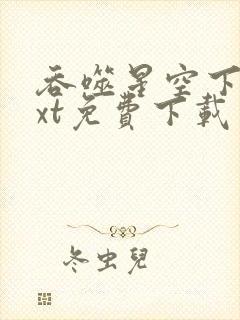 吞噬星空下
xt免費下載
冬虫兒